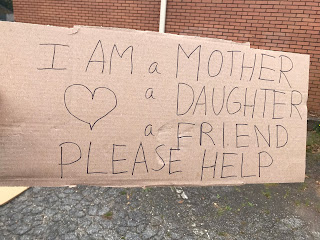 I AM a MOTHER
a DAUGHTER
a FRIEND
PLEASE HELP